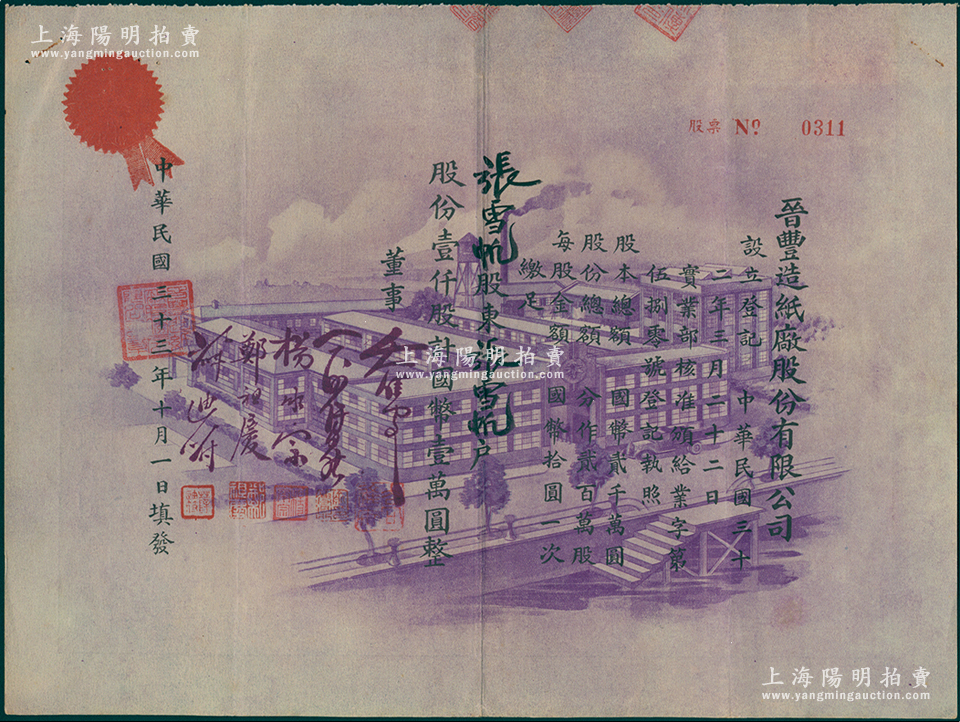 上海陽明拍賣
www.yangmingauction.com
股票 No. 0311
晉豐造紙廠股份有限公司
設立登記 中華民國三十
二年三月二十二日
實業部核准頒給業字第
伍捌零號登記執照
股本總額 國幣貳千萬圓
股份總額 分作貳百萬股
每股金額 國幣拾圓一次
繳足
張雪帆股東張雪帆户
股份壹仟股計國幣壹萬圓整
董事
中華民國三十三年十月一日填發
上海陽明拍賣
www.yangmingauction.com
上海陽明拍賣
www.yangmingauction.com